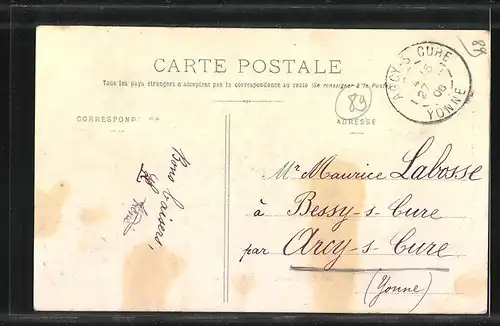 89
CARTE POSTALE
Tous les pays étrangers n'acceptent pas la correspondance au recto (Se renseigner à la Poste)
ARCY-S-CURE
27
06
YONNE
89
CORRESPONDANCE
ADRESSE
Bons baisers
Mr Maurice Labosse
à Bessy-s-Cure
par Arcy-s-Cure
(Yonne)